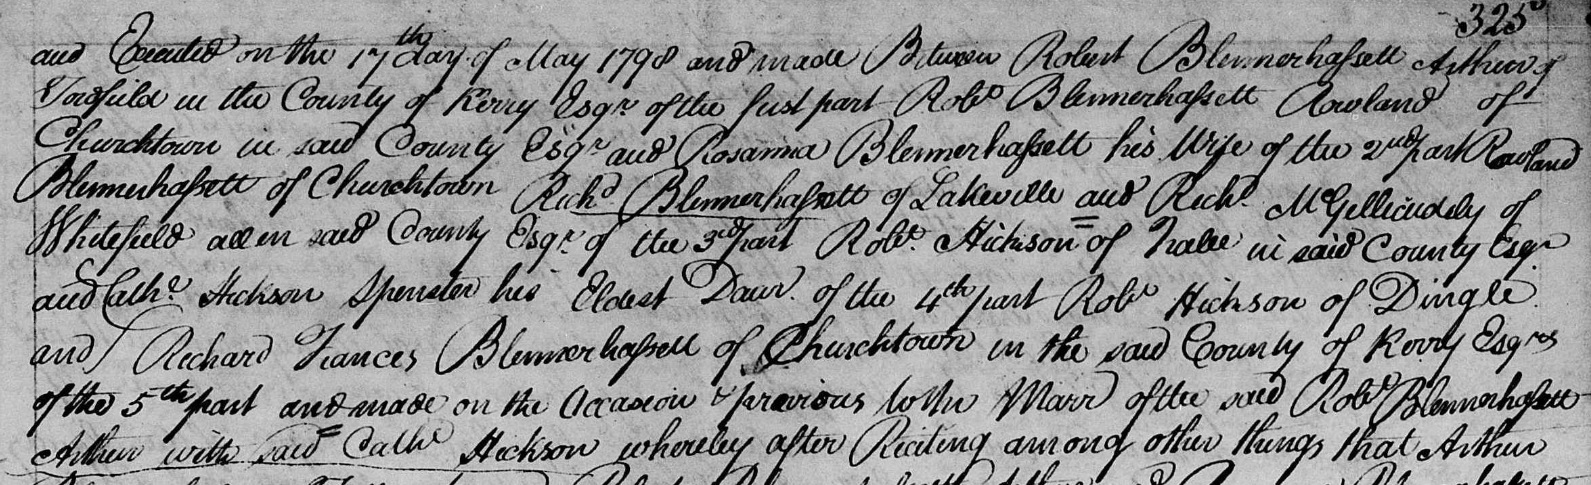 325
and Executed on the 17th day of May 1798 and made Between Robert Blennerhassett Arthur of
in the County of Kerry Esqr. of the first part Robt Blennerhassett Rowland of
Churchtown in said County Esqr and Rosanna Blennerhassett his Wife of the 2nd part Rowland
Blennerhassett of Churchtown Richd Blennerhassett of Lakeville and Richd McGillicuddy of
Whitefield all in said County Esqr. of the 3rd part Robt. Hickson of Tralee in said County Esqr
and Cathe. Hickson Spinster his Eldest Daur. of the 4th part Robt Hickson of Dingle
and Richard Frances Blennerhassett of Churchtown in the said County of Kerry Esqres
of the 5th part and made on the Occasion & previous to the Marr of the said Robt Blennerhassett
Arthur with said Cathe Hickson whereby after Reciting among other things that Arthur